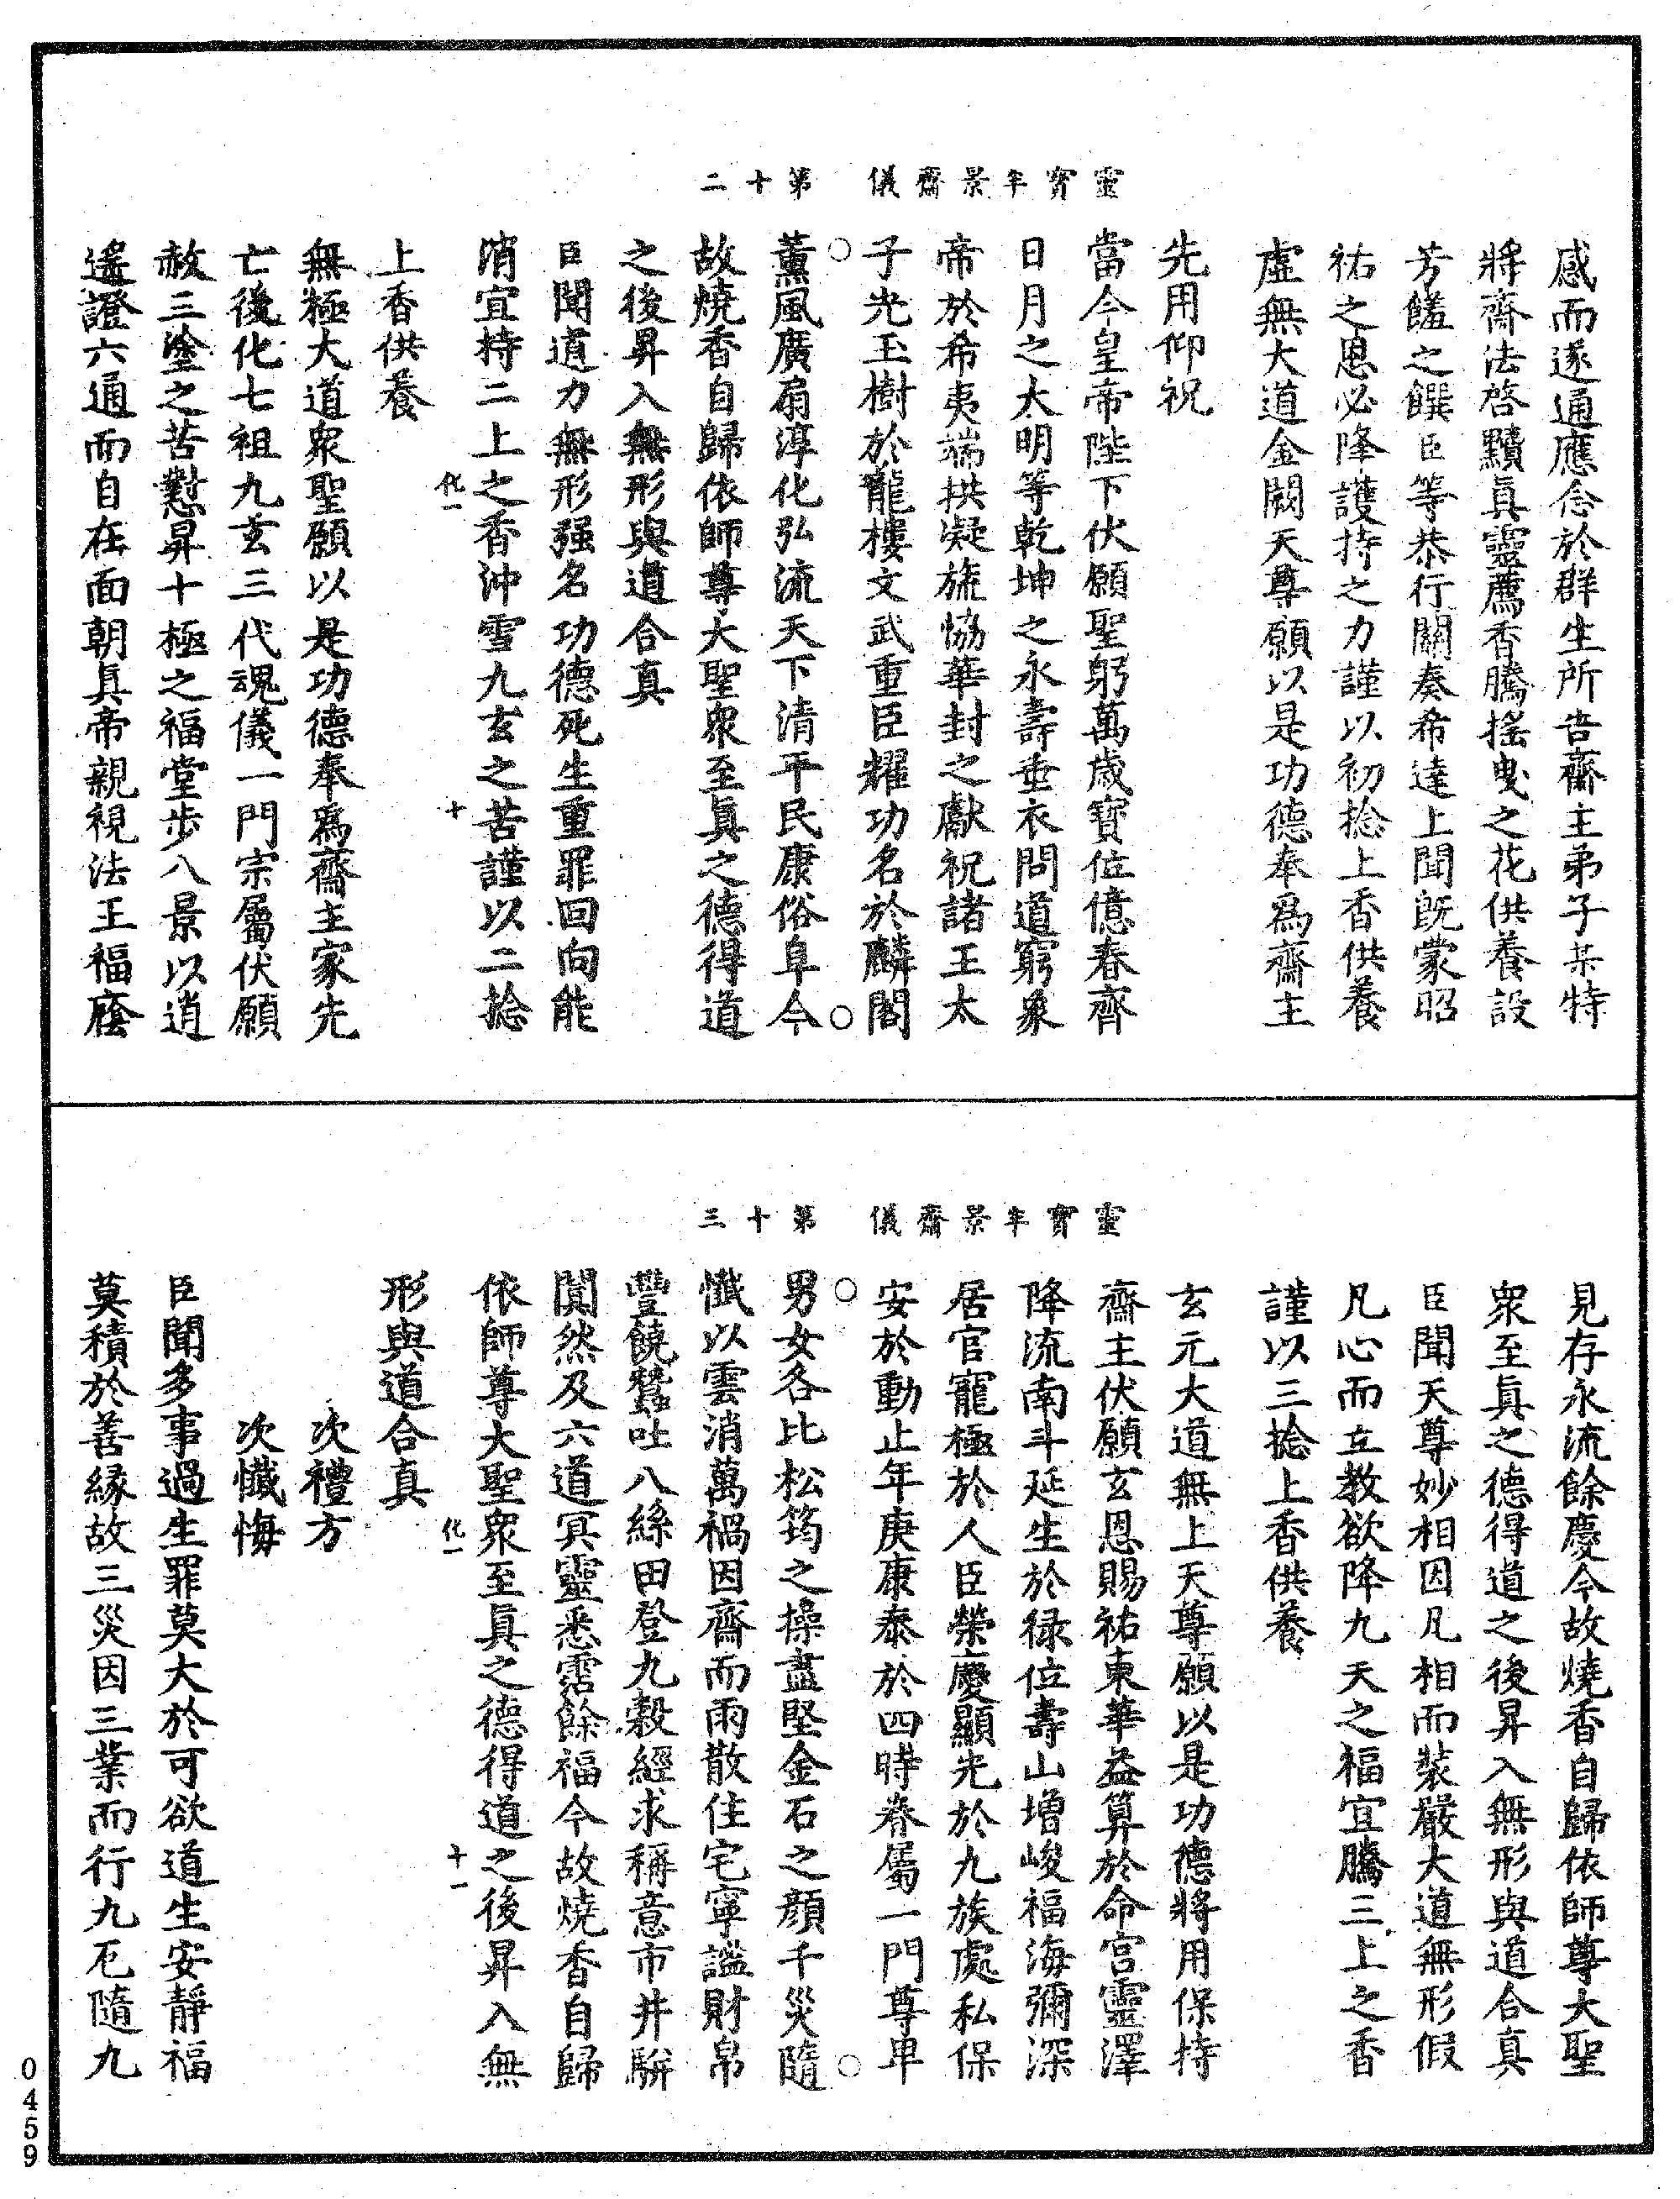 靈寶半景齋儀　第十二
感而遂通應念於群生所告齋主弟子某特
將齋法啓黷眞靈薦香騰搖曳之花供養設
芳饈之饌臣等恭行關奏希達上聞旣蒙昭
祐之恩必降護持之力謹以初捻上香供養
虛無大道金闕天尊願以是功德奉爲齋主
先用仰祝
當今皇帝陛下伏願聖躬萬歲寶位億春齊
日月之太明等乾坤之永壽垂衣問道窮象
帝於希夷端拱凝旒恊華封之獻祝諸王太
子光玉樹於龍樓文武重臣耀功名於麟閣
薰風廣扇淳化弘流天下清平民康俗阜今
故燒香自歸依師尊大聖衆至眞之德得道
之後昇入無形與道合真
臣聞道力無形强名功德死生重罪回向能
消宜持二上之香沖雪九玄之苦謹以二捻
化一　十
上香供養
無極大道衆聖願以是功德奉爲齋主家先
亡後化七祖九玄三代魂儀一門宗屬伏願
赦三塗之苦懟昇十極之福堂步八景以逍
遙證六通而自在面朝眞帝親視法王福廕
靈寶半景齋儀　第十三
見存永流餘慶今故燒香自歸依師尊大聖
衆至眞之德得道之後昇入無形與道合真
臣聞天尊妙相因凡相而裝嚴大道無形假
凡心而立教欲降九天之福宜騰三上之香
謹以三捻上香供養
玄元大道無上天尊願以是功德將用保持
齋主伏願玄恩賜祐東華益算於命宮靈澤
降流南斗延生於祿位壽山增峻福海彌深
居官寵極於人臣榮慶顯光於九族處私保
安於動止年庚康泰於四時眷屬一門尊卑
男女各比松筠之操盡堅金石之顏千災隨
懺以雲消萬禍因齋而雨散住宅寧謐財帛
豐饒蠶吐八絲田登九穀經求稱意市井駢
闐然及六道冥靈悉霑餘福今故燒香自歸
依師尊大聖衆至眞之德得道之後昇入無
化一　十一
形與道合真
次禮方
次懺悔
臣聞多事過生罪莫大於可欲道生安靜福
莫積於善緣故三災因三業而行九厄隨九
0459